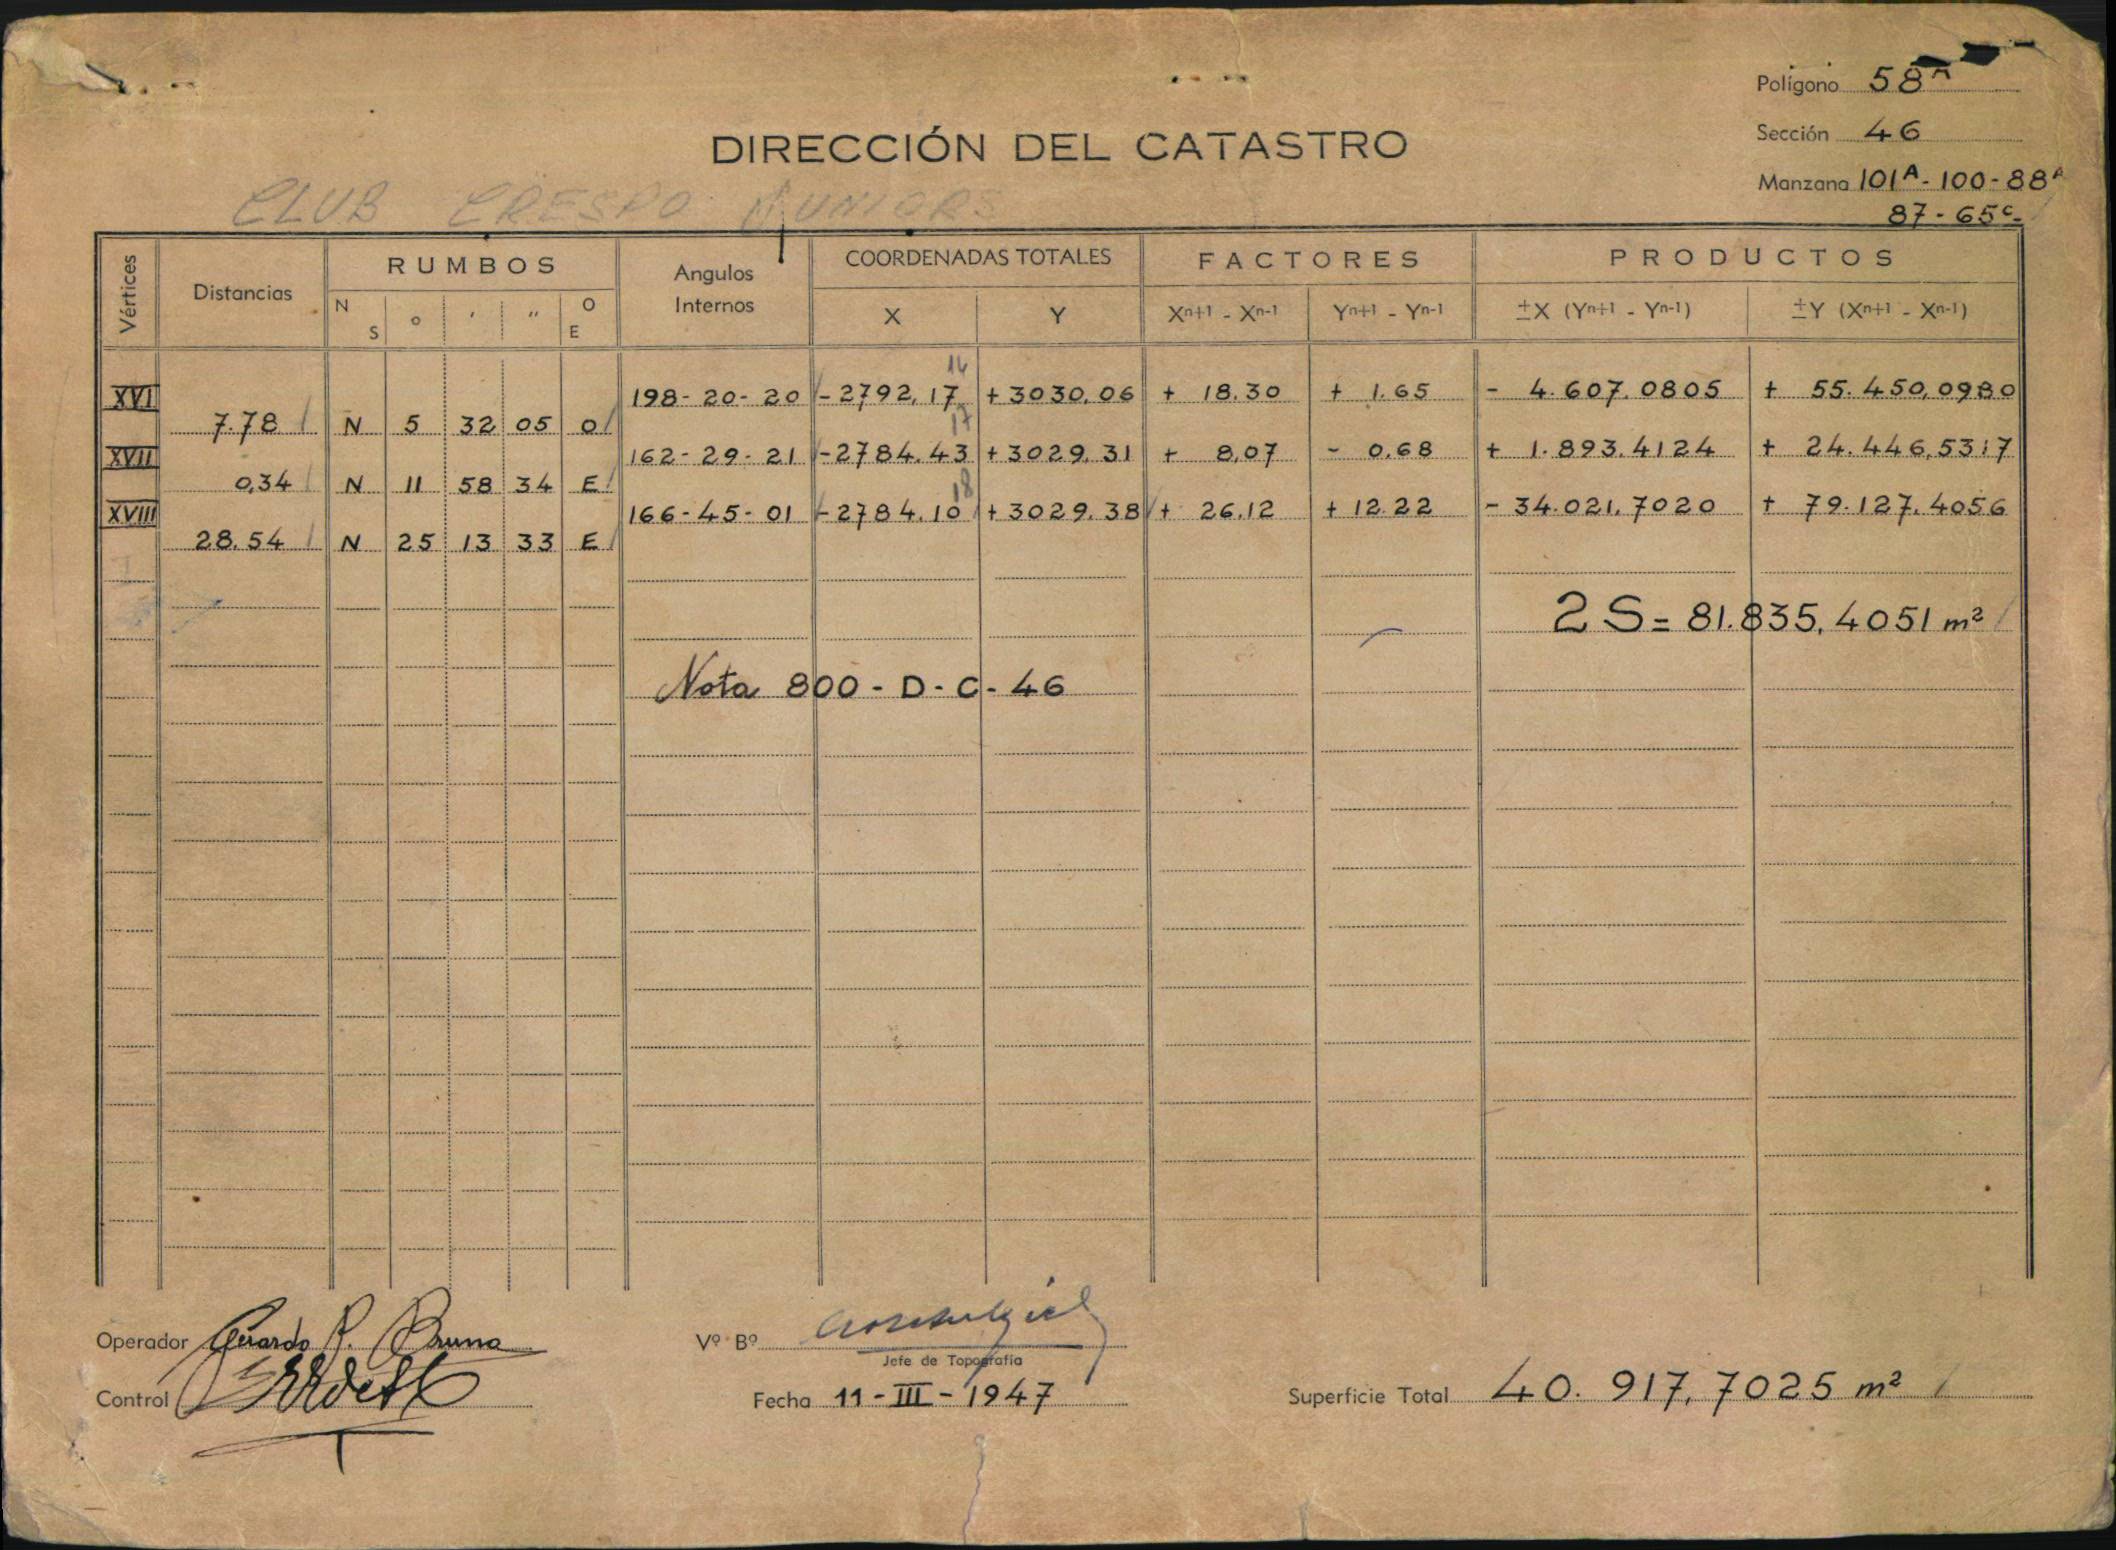 Polígono 58A
Sección 46
DIRECCIÓN DEL CATASTRO
Manzana 101A - 100 - 88A
CLUB CRESPO JUNIORS
87 - 65c -
Vértices Distancias RUMBOS Angulos Internos COORDENADAS TOTALES FACTORES PRODUCTOS
N S ° ' " O E X Y Xn+1 - Xn-1 Yn+1 - Yn-1 ±X (Yn+1 - Yn-1) ±Y (Xn+1 - Xn-1)
14
XVI 198 - 20 - 20 - 2792,17 + 3030,06 + 18.30 + 1.65 - 4.607.0805 + 55.450,0980
7.78 N 5 32 05 O 17
XVII 162 - 29 - 21 - 2784.43 + 3029.31 + 8,07 - 0,68 + 1.893.4124 + 24.446,5317
0,34 N 11 58 34 E 18
XVIII 166 - 45 - 01 - 2784.10 + 3029.38 + 26.12 + 12.22 - 34.021.7020 + 79.127.4056
28.54 N 25 13 33 E
2 S = 81.835,4051 m²
Nota 800 - D - C - 46
Operador Gerardo P. Bruno Vº Bº
Jefe de Topografía
Control Fecha 11 - III - 1947 Superficie Total 40.917,7025 m²